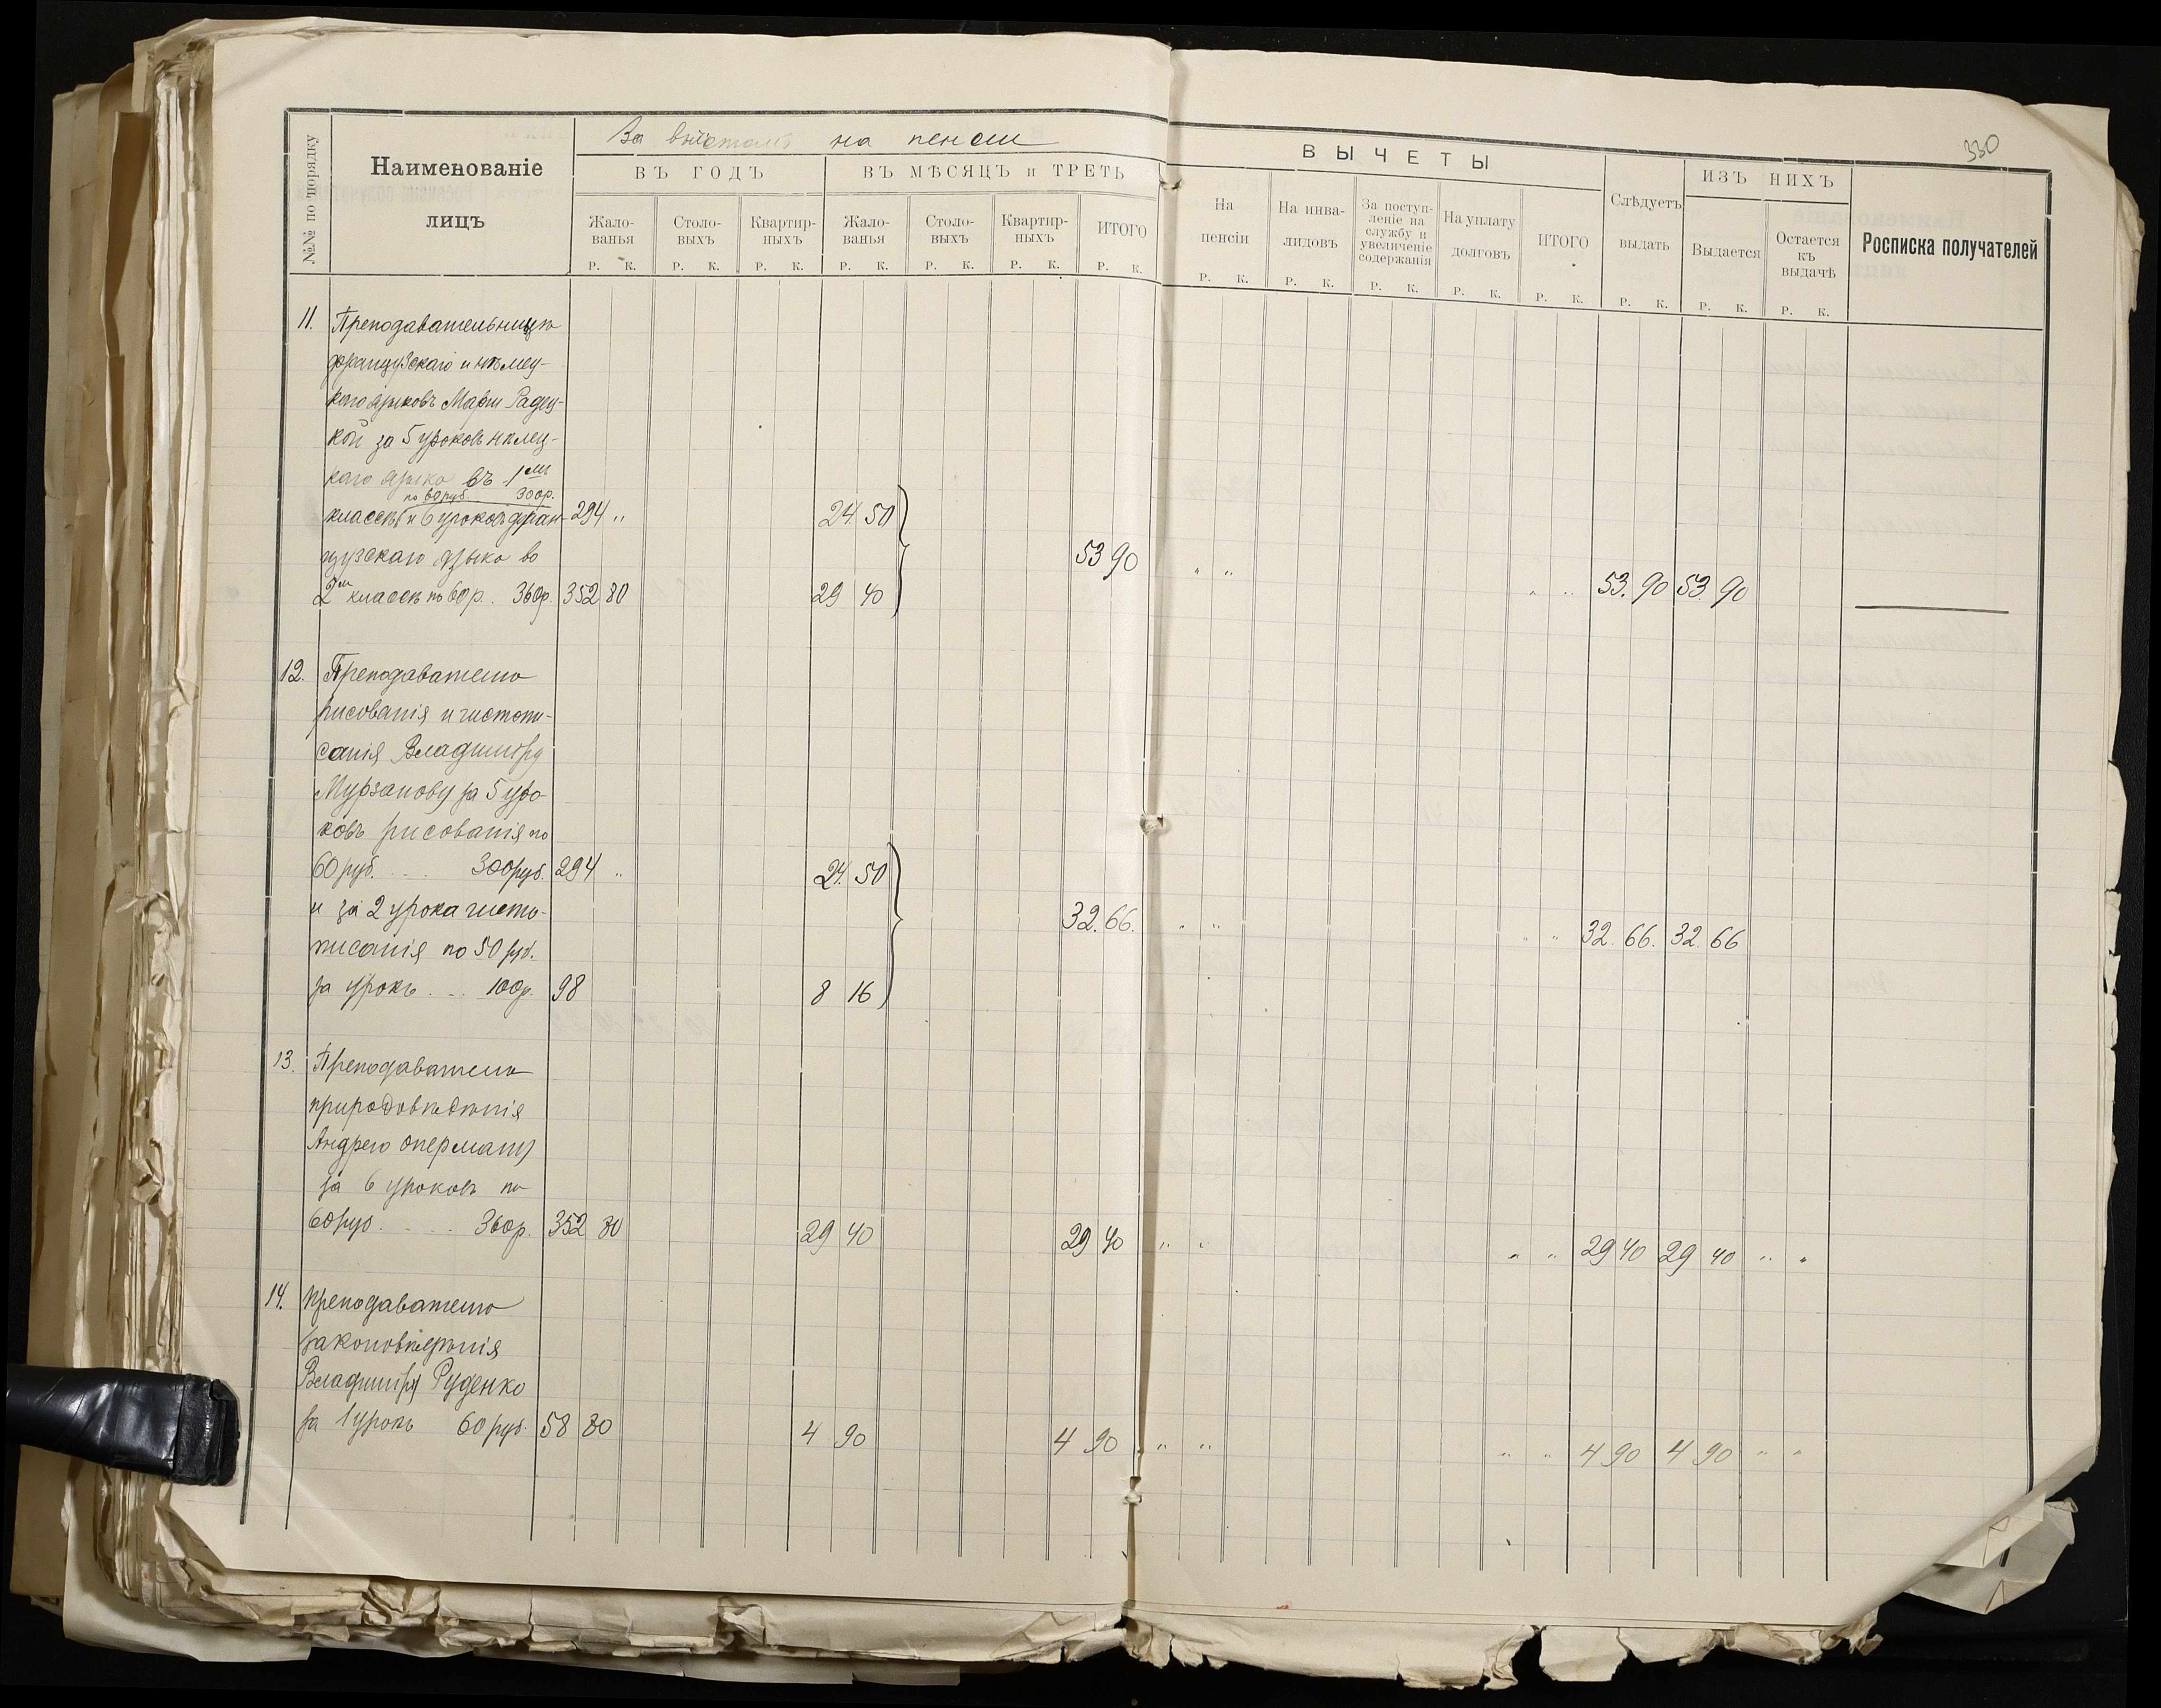 330
За вычетомъ на пенсіи
№№ по порядку
Наименованіе лицъ
ВЪ ГОДЪ
ВЪ МѢСЯЦЪ и ТРЕТЬ
ВЫЧЕТЫ
Слѣдуетъ выдать
ИЗЪ НИХЪ
Росписка получателей
Жалованья Столовыхъ Квартирныхъ Жалованья Столовыхъ Квартирныхъ ИТОГО
На пенсіи На инвалидовъ За поступленіе на службу и увеличеніе содержанія На уплату долговъ ИТОГО
Выдается Остается къ выдачѣ
Р. К. Р. К. Р. К. Р. К. Р. К. Р. К. Р. К. Р. К. Р. К. Р. К. Р. К. Р. К. Р. К. Р. К. Р. К.
11. Преподавательницѣ
французскаго и нѣмец-
каго языковъ Маріи Радец-
кой за 5 уроковъ нѣмец-
каго языка въ 1мъ
по 60 руб. 300р.
классѣ и 6 уроковъ фран- 294 „ 24. 50
цузскаго языка во 53 90 „ „
2мъ классѣ по 60 р. 360р. 352 80 29 40 „ „ 53. 90 53. 90
12. Преподавателю
рисованія и чистопи-
санія Владиміру
Мурзанову за 5 уро-
ковъ рисованія по
60 руб. . . . 300 руб. 294 „ 24. 50
и за 2 урока чисто- 32. 66. „ „ „ „ 32. 66. 32. 66
писанія по 50 руб.
за урокъ . . . 100р. 98 8 16
13. Преподавателю
природовѣдѣнія
Андрею Оперману
за 6 уроковъ по
60 руб. . . . 360р. 352 80 29 40 29 40 „ „ „ „ 29 40 29 40 „ „
14. Преподавателю
законовѣдѣнія
Владиміру Руденко
за 1 урокъ 60 руб. 58 80 4 90 4 90 „ „ „ „ 4 90 4 90 „ „